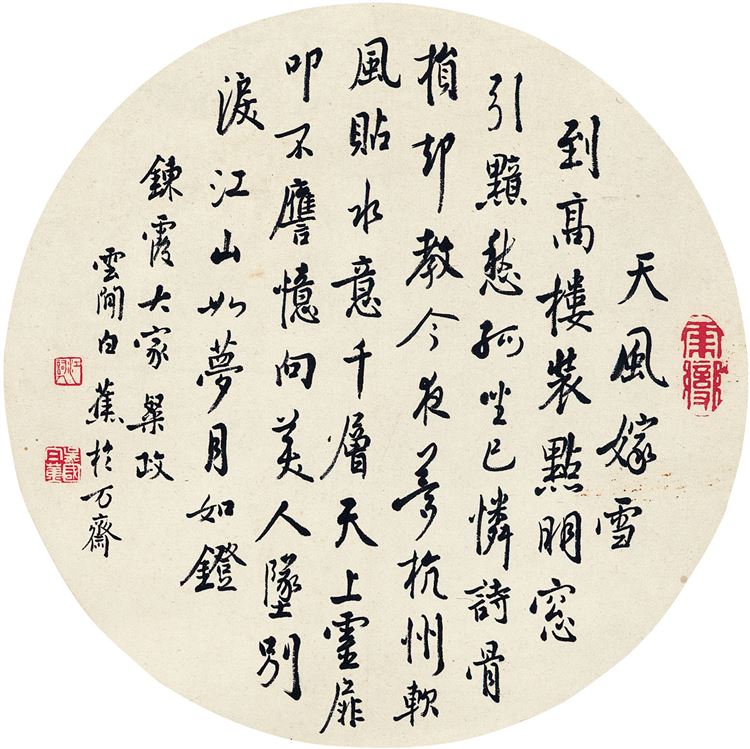 天風嫁雪
到高樓裝點明窓
引黯愁孤坐已憐詩骨
損却教今夜夢杭州軟
風貼水意千層天上靈扉
叩不譍憶向美人墜別
淚江山如夢月如鐙
鍊霞大家粲政
雲間白蕉於万齋